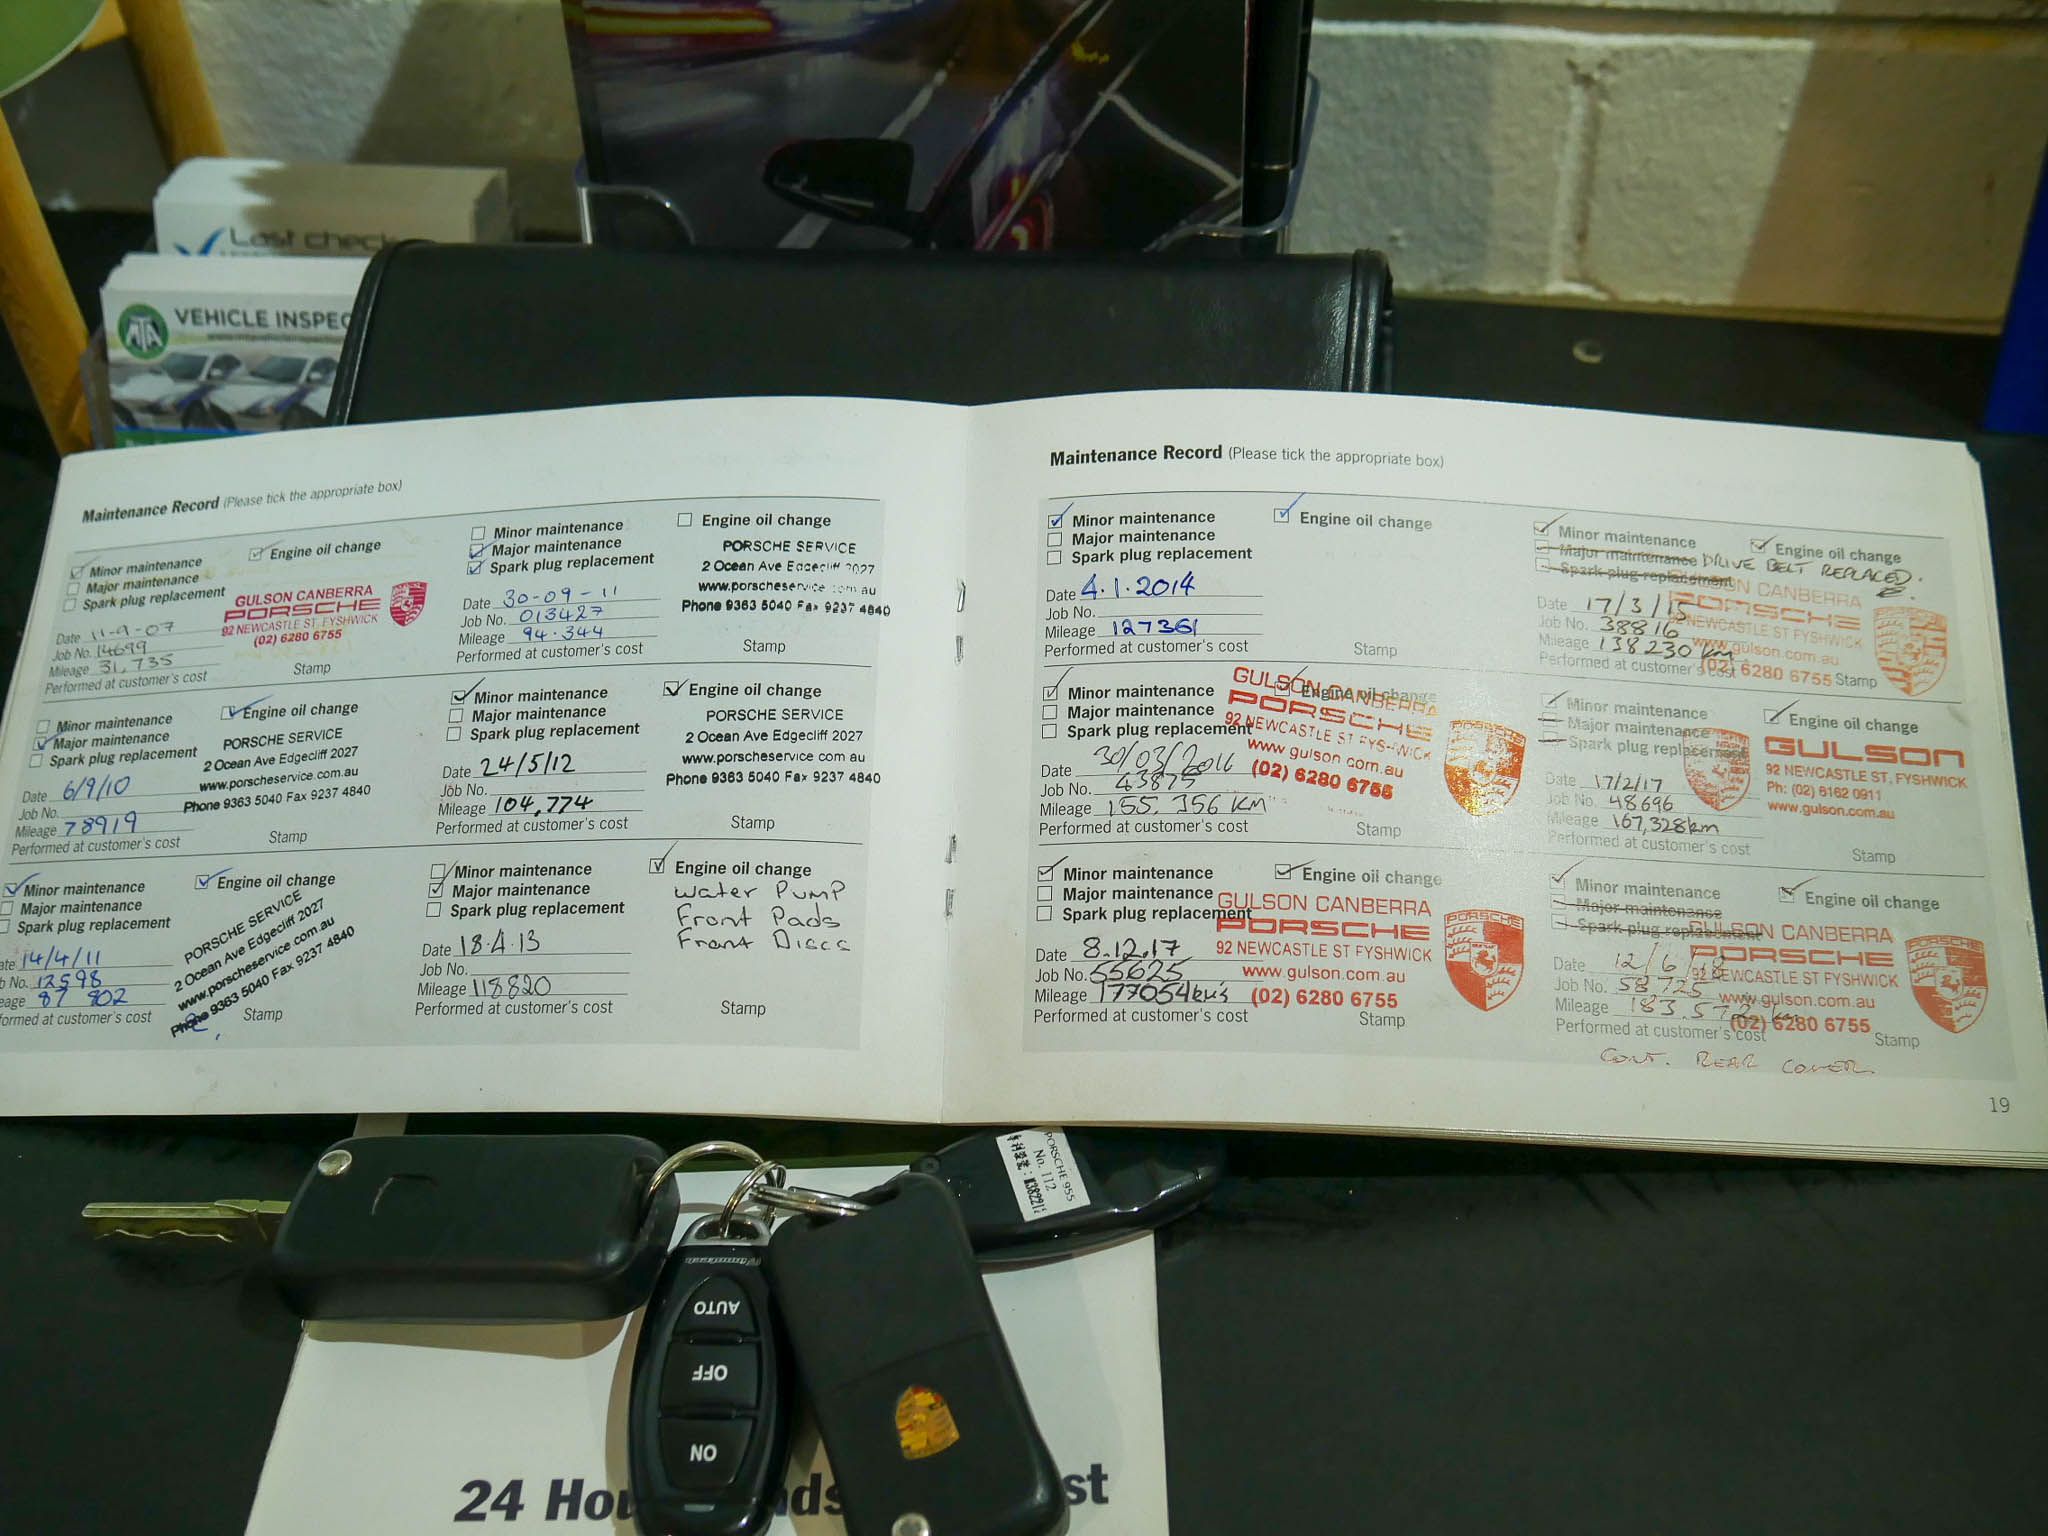 Last check
MTA
VEHICLE INSPEC
Maintenance Record (Please tick the appropriate box)
Minor maintenance
Engine oil change
Major maintenance
Spark plug replacement
GULSON CANBERRA
PORSCHE
92 NEWCASTLE ST, FYSHWICK
(02) 6280 6755
Date 11-9-07
Job No. 14699
Mileage 31,735
Performed at customer's cost
Stamp
Minor maintenance
Engine oil change
Major maintenance
Spark plug replacement
PORSCHE SERVICE
2 Ocean Ave Edgecliff 2027
www.porscheservice.com.au
Phone 9363 5040 Fax 9237 4840
Date 6/9/10
Job No.
Mileage 78919
Performed at customer's cost
Stamp
Minor maintenance
Engine oil change
Major maintenance
Spark plug replacement
PORSCHE SERVICE
2 Ocean Ave Edgecliff 2027
www.porscheservice.com.au
Phone 9363 5040 Fax 9237 4840
ate 14/4/11
b No. 12598
eage 87 802
formed at customer's cost
Stamp
Minor maintenance
Engine oil change
Major maintenance
Spark plug replacement
PORSCHE SERVICE
2 Ocean Ave Edgecliff 2027
www.porscheservice.com.au
Phone 9363 5040 Fax 9237 4840
Date 30-09-11
Job No. 013427
Mileage 94.344
Performed at customer's cost
Stamp
Minor maintenance
Engine oil change
Major maintenance
Spark plug replacement
PORSCHE SERVICE
2 Ocean Ave Edgecliff 2027
www.porscheservice.com.au
Phone 9363 5040 Fax 9237 4840
Date 24/5/12
Job No.
Mileage 104,774
Performed at customer's cost
Stamp
Minor maintenance
Engine oil change
Major maintenance
Spark plug replacement
Water Pump
Front Pads
Front Discs
Date 18.4.13
Job No.
Mileage 118820
Performed at customer's cost
Stamp
Maintenance Record (Please tick the appropriate box)
Minor maintenance
Engine oil change
Major maintenance
Spark plug replacement
Date 4.1.2014
Job No.
Mileage 127361
Performed at customer's cost
Stamp
Minor maintenance
Engine oil change
Major maintenance
Spark plug replacement
GULSON CANBERRA
PORSCHE
92 NEWCASTLE ST FYSHWICK
www.gulson.com.au
(02) 6280 6755
Date 30/03/2016
Job No. 43875
Mileage 155,356 KM
Performed at customer's cost
Stamp
Minor maintenance
Engine oil change
Major maintenance
Spark plug replacement
GULSON CANBERRA
PORSCHE
92 NEWCASTLE ST FYSHWICK
www.gulson.com.au
(02) 6280 6755
PORSCHE
Date 8.12.17
Job No. 55625
Mileage 177054km's
Performed at customer's cost
Stamp
Minor maintenance
Engine oil change
Major maintenance
DRIVE BELT REPLACED.
Spark plug replacement
GULSON CANBERRA
PORSCHE
NEWCASTLE ST FYSHWICK
www.gulson.com.au
(02) 6280 6755
Date 17/3/15
Job No. 38816
Mileage 138230 km
Performed at customer's cost
Stamp
Minor maintenance
Engine oil change
Major maintenance
Spark plug replacement
GULSON
92 NEWCASTLE ST, FYSHWICK
Ph: (02) 6162 0911
www.gulson.com.au
Date 17/2/17
Job No. 48696
Mileage 167,328km
Performed at customer's cost
Stamp
Minor maintenance
Engine oil change
Major maintenance
Spark plug replacement
GULSON CANBERRA
PORSCHE
92 NEWCASTLE ST FYSHWICK
www.gulson.com.au
(02) 6280 6755
PORSCHE
Date 12/6/18
Job No. 58725
Mileage 183.572 km
Performed at customer's cost
Stamp
CONT. REAR COVER
19
PORSCHE 955
No. 112
AUTO
OFF
ON
24 Hou
st